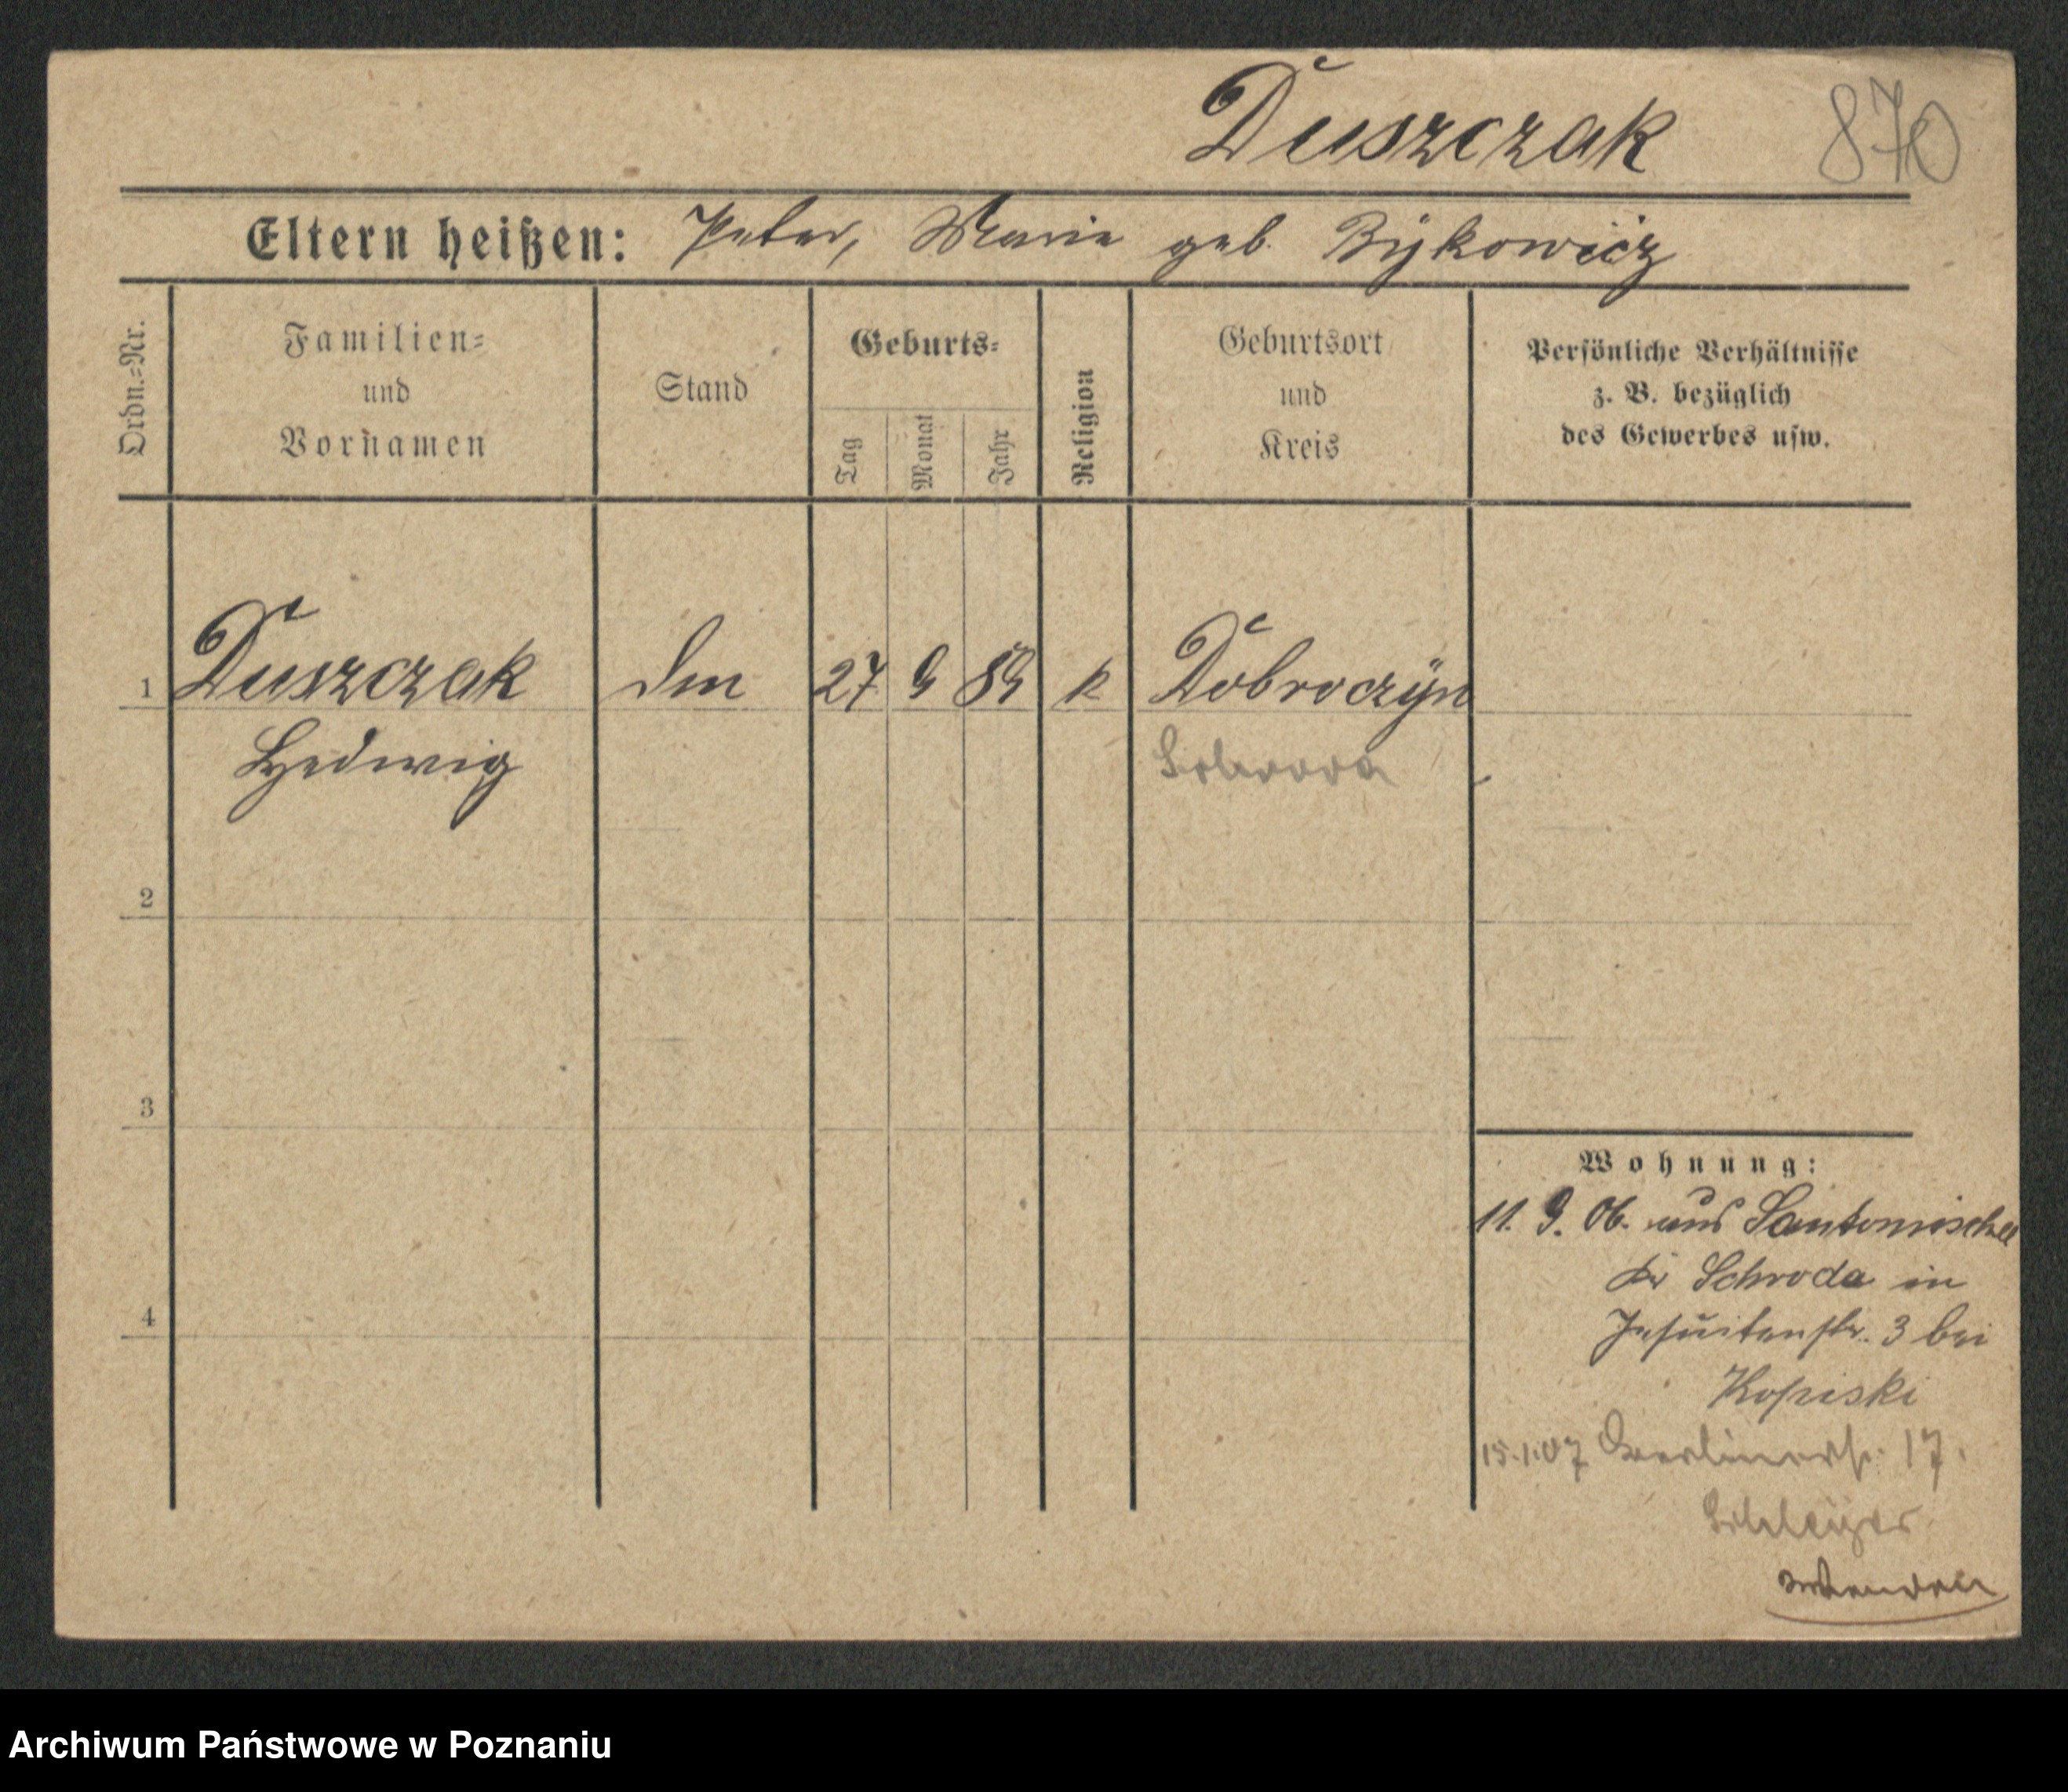 Duszczak 870
Eltern heißen: Peter, Marie geb. Bykowicz
Ordn.-Nr.
Familien-
und
Vornamen
Stand
Geburts-
Tag
Monat
Jahr
Religion
Geburtsort
und
Kreis
Persönliche Verhältnisse
z. B. bezüglich
des Gewerbes usw.
1 Duszczak 27 9 89 k Dobroczyn
Hedwig Schroda
2
3
4
Wohnung:
11. 9. 06. aus Santomischel
Kr Schroda in
Jesuitenstr. 3 bei
Kopiski
15.1.07 Berlinerstr. 17.
Archiwum Państwowe w Poznaniu